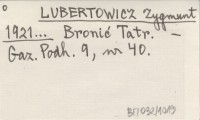 LUBERTOWICZ Zygmunt
1921... Bronić Tatr. —
Gaz. Podh. 9, nr 40.